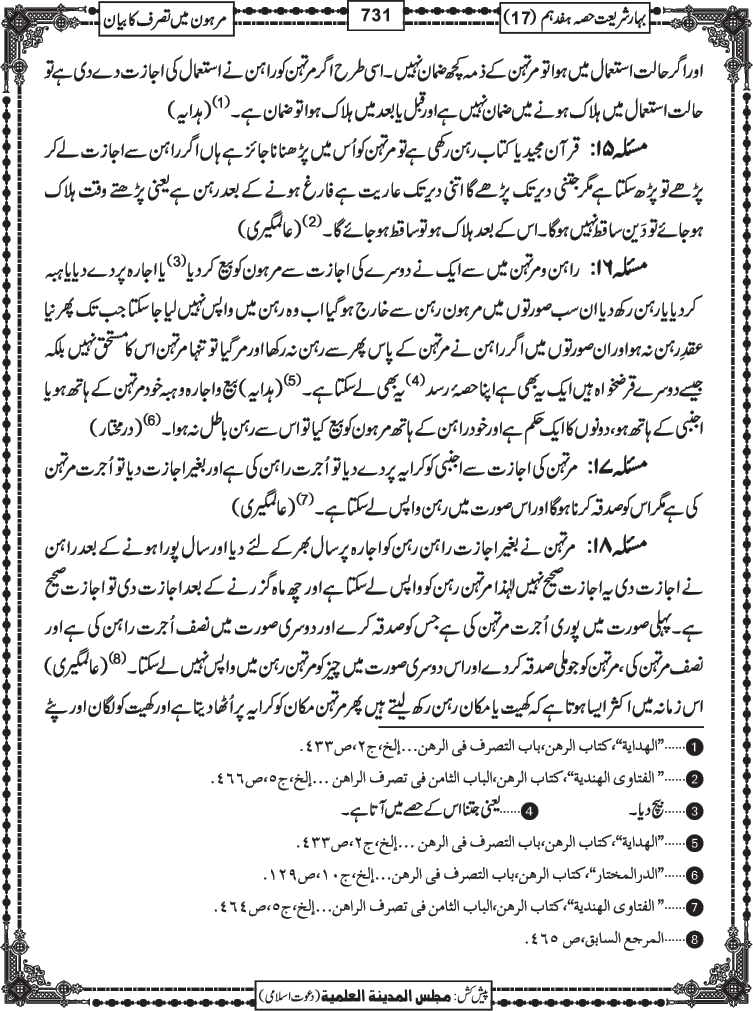 بہارِ شریعت حصہ ہفدہم (17)
731
مرہون میں تصرف کا بیان
اور اگر حالت استعمال میں ہوا تو مرتہن کے ذمہ کچھ ضمان نہیں۔ اسی طرح اگر مرتہن کو راہن نے استعمال کی اجازت دے دی ہے تو
حالت استعمال میں ہلاک ہونے میں ضمان نہیں ہے اور قبل یا بعد میں ہلاک ہوا تو ضمان ہے۔(1) (ہدایہ)
مسئلہ ۱۵: قرآن مجید یا کتاب رہن رکھی ہے تو مرتہن کو اُس میں پڑھنا ناجائز ہے ہاں اگر راہن سے اجازت لے کر
پڑھے تو پڑھ سکتا ہے مگر جتنی دیر تک پڑھے گا اتنی دیر تک عاریت ہے فارغ ہونے کے بعد رہن ہے یعنی پڑھتے وقت ہلاک
ہو جائے تو دَین ساقط نہیں ہوگا۔ اس کے بعد ہلاک ہو تو ساقط ہو جائے گا۔(2) (عالمگیری)
مسئلہ ۱۶: راہن و مرتہن میں سے ایک نے دوسرے کی اجازت سے مرہون کو بیع کر دیا(3) یا اجارہ پر دے دیا یا ہبہ
کر دیا یا رہن رکھ دیا ان سب صورتوں میں مرہون رہن سے خارج ہو گیا اب وہ رہن میں واپس نہیں لیا جا سکتا جب تک پھر نیا
عقدِ رہن نہ ہو اور ان صورتوں میں اگر راہن نے مرتہن کے پاس پھر سے رہن نہ رکھا اور مر گیا تو تنہا مرتہن اس کا مستحق نہیں بلکہ
جیسے دوسرے قرضخواہ ہیں ایک یہ بھی ہے اپنا حصۂ رسد(4) یہ بھی لے سکتا ہے۔(5) (ہدایہ) بیع و اجارہ و ہبہ خود مرتہن کے ہاتھ ہو یا
اجنبی کے ہاتھ ہو، دونوں کا ایک حکم ہے اور خود راہن کے ہاتھ مرہون کو بیع کیا تو اس سے رہن باطل نہ ہوا۔(6) (درمختار)
مسئلہ ۱۷: مرتہن کی اجازت سے اجنبی کو کرایہ پر دے دیا تو اُجرت راہن کی ہے اور بغیر اجازت دیا تو اُجرت مرتہن
کی ہے مگر اس کو صدقہ کرنا ہوگا اور اس صورت میں رہن واپس لے سکتا ہے۔(7) (عالمگیری)
مسئلہ ۱۸: مرتہن نے بغیر اجازت راہن رہن کو اجارہ پر سال بھر کے لئے دیا اور سال پورا ہونے کے بعد راہن
نے اجازت دی یہ اجازت صحیح نہیں لہٰذا مرتہن رہن کو واپس لے سکتا ہے اور چھ ماہ گزرنے کے بعد اجازت دی تو اجازت صحیح
ہے۔ پہلی صورت میں پوری اُجرت مرتہن کی ہے جس کو صدقہ کرے اور دوسری صورت میں نصف اُجرت راہن کی ہے اور
نصف مرتہن کی، مرتہن کو جو ملی صدقہ کر دے اور اس دوسری صورت میں چیز کو مرتہن رہن میں واپس نہیں لے سکتا۔(8) (عالمگیری)
اس زمانہ میں اکثر ایسا ہوتا ہے کہ کھیت یا مکان رہن رکھ لیتے ہیں پھر مرتہن مکان کو کرایہ پر اُٹھا دیتا ہے اور کھیت کو لگان اور پٹے
1 ......"الهداية"، كتاب الرهن، باب التصرف في الرهن...إلخ، ج٢، ص٤٣٣.
2 ......"الفتاوى الهندية"، كتاب الرهن، الباب الثامن في تصرف الراهن...إلخ، ج٥، ص٤٦٦.
3 ......بیچ دیا۔ 4 ......یعنی جتنا اس کے حصے میں آتا ہے۔
5 ......"الهداية"، كتاب الرهن، باب التصرف في الرهن...إلخ، ج٢، ص٤٣٣.
6 ......"الدرالمختار"، كتاب الرهن، باب التصرف في الرهن...إلخ، ج١٠، ص١٢٩.
7 ......"الفتاوى الهندية"، كتاب الرهن، الباب الثامن في تصرف الراهن...إلخ، ج٥، ص٤٦٤.
8 ......المرجع السابق، ص ٤٦٥.
پیش کش: مجلس المدینة العلمیة (دعوت اسلامی)